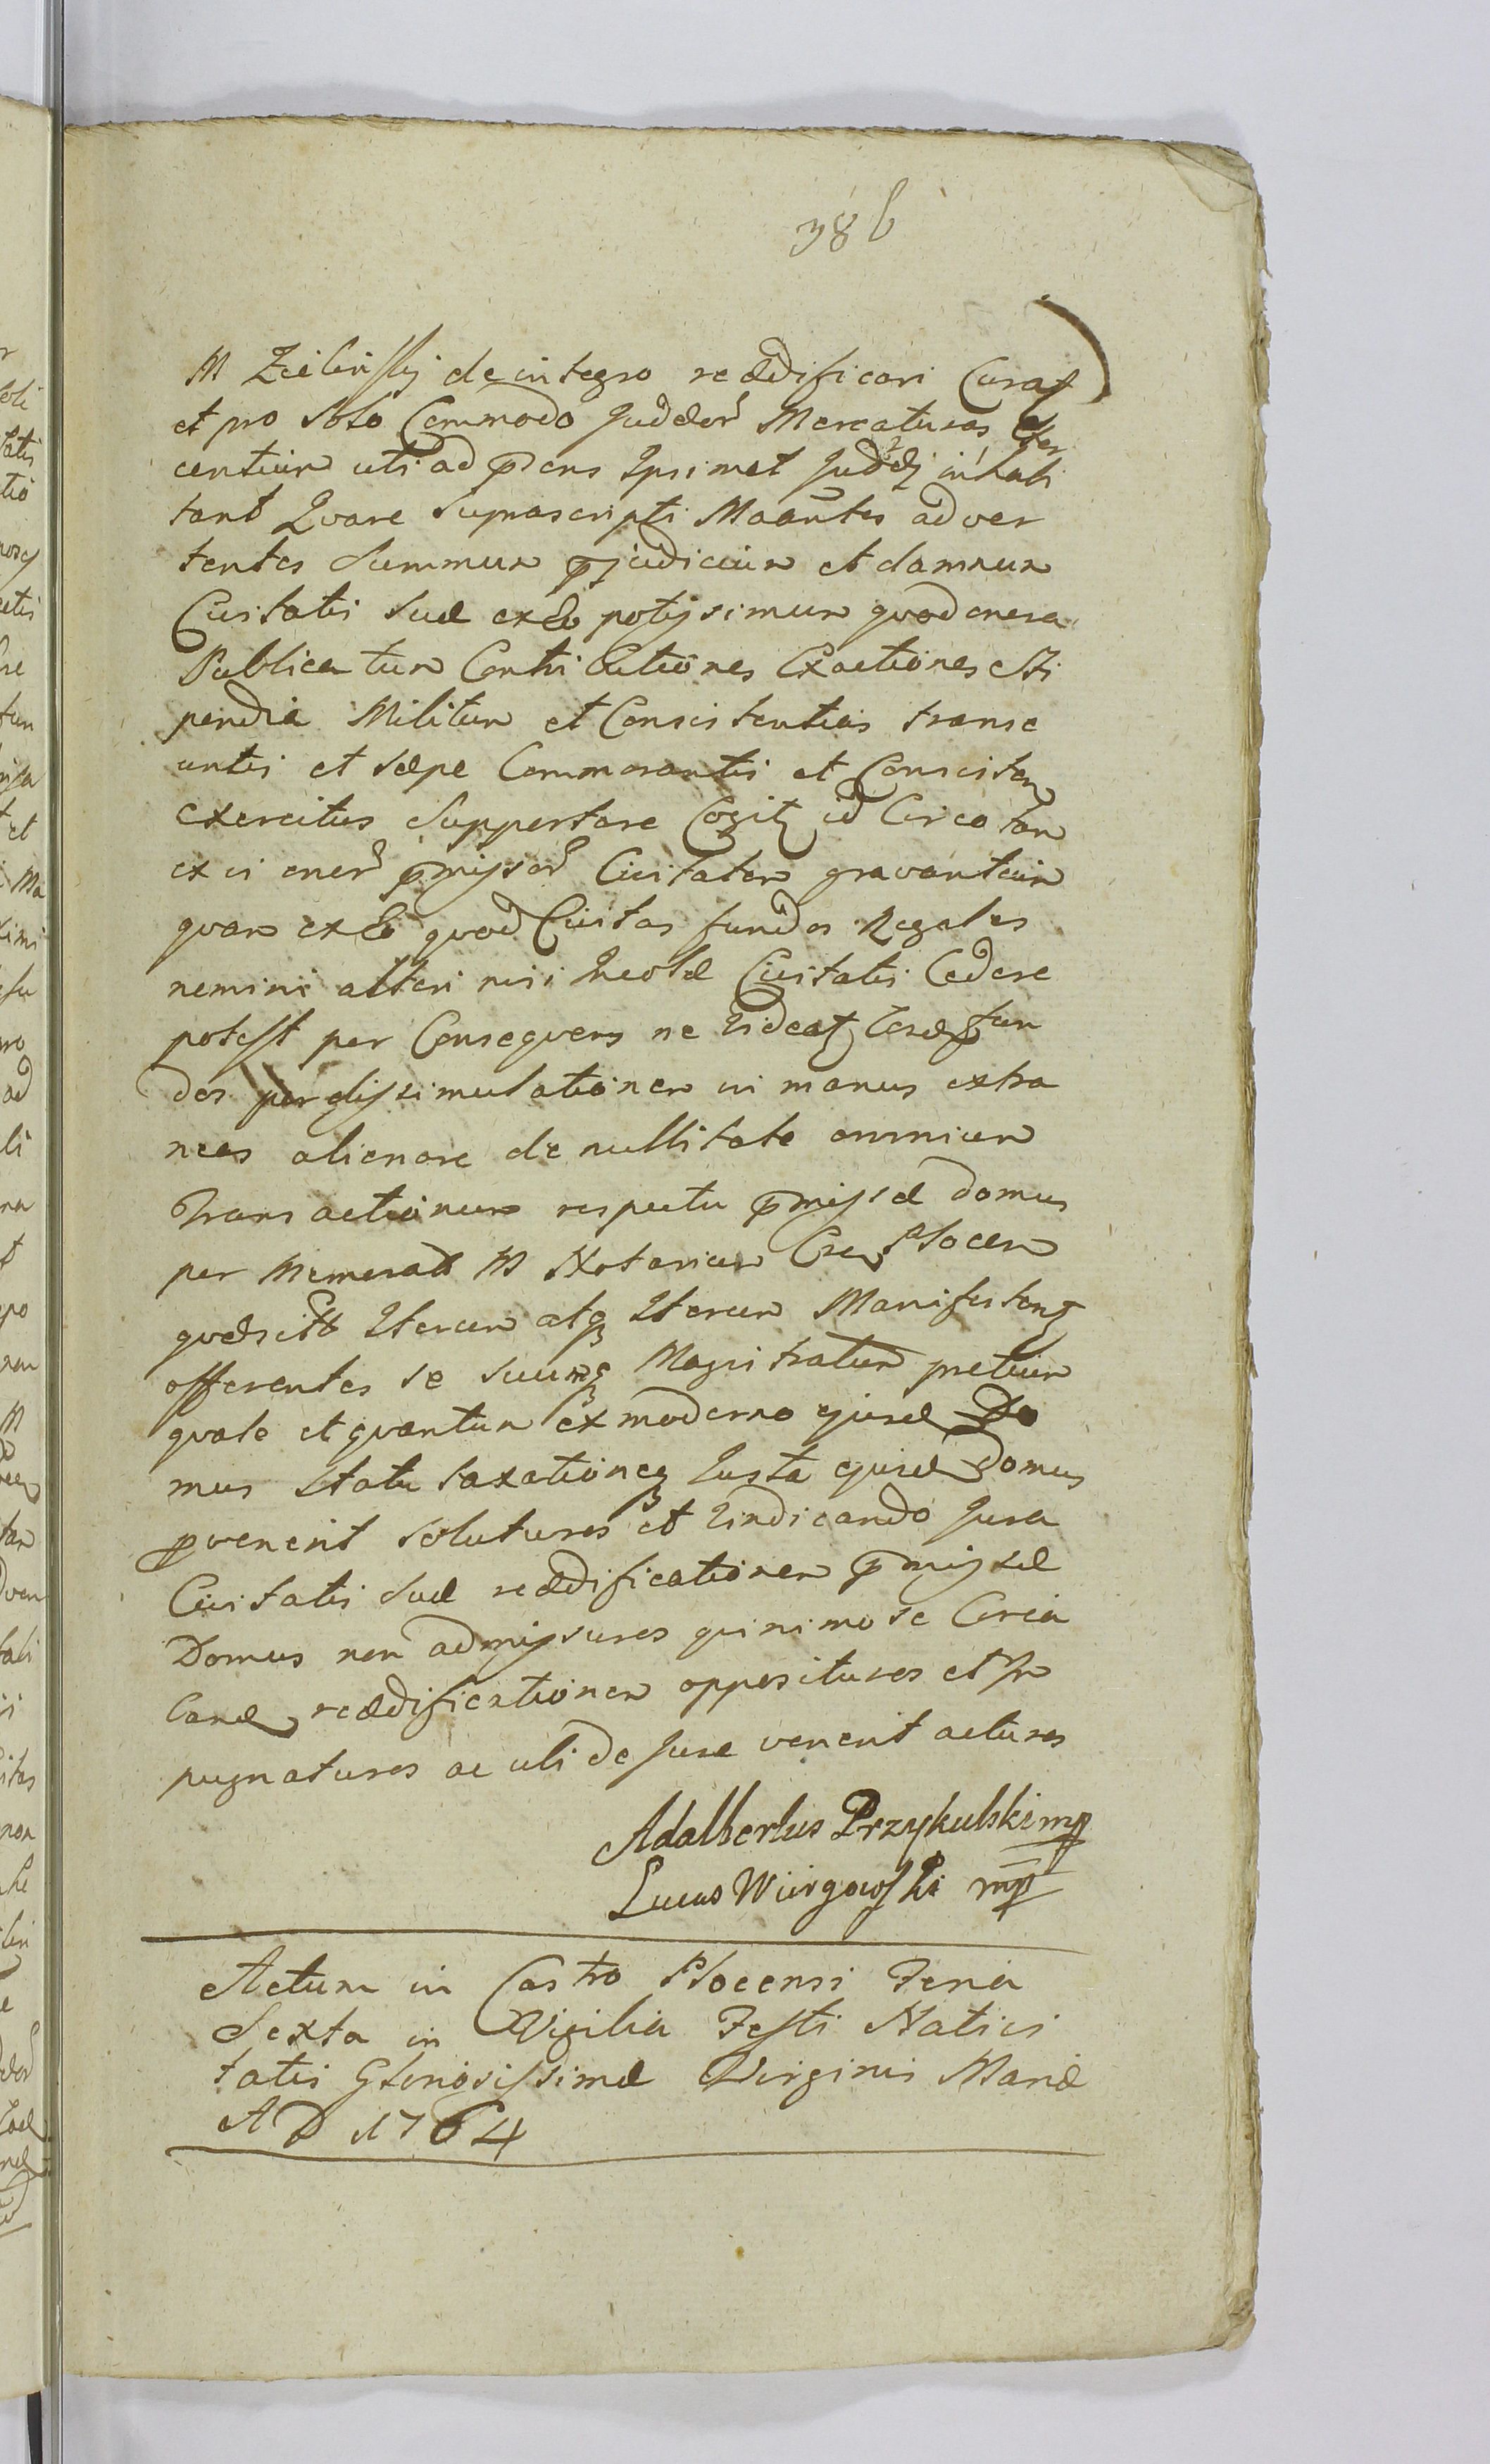 386
M Zielinskij de integro reædificari Curat
et pro Solo Commodo Judæor Mercaturas Exer
centium uti ad pdens Ipsimet Judæj inhabi
tant Quare Suprascripti Maantes adver
tentes Summum pjudicium et damnum
Civitatis Suæ ex Eo potissimum quod onera
Publica tum Contributiones Exactiones Sti
pendia Militum et Consistentias transe
untis et sæpe Commorantis et Consisten
exercitus Supportare Cogit id Circo tam
ex vi oner pmissor Civitatem gravantium
quam ex Eo quod Civitas fundos Regales
nemini alteri nisi Incolæ Civitatis Cedere
potest per Consequens ne Videat Eosd fun
dos per dissimulationem in manus extra
neas alienare de nullitate omnium
Transactionum respectu pmissæ domus
per Memorat M Notarium Cren Plocen
quæsitæ Iterum atq Iterum Manifestant
offerentes se suumq Magistratum pretium
quale et quantum ex moderno ejusd Do
mus Statu taxationeq Justa ejusd Domus
pvenerit soluturos et Vindicando Jura
Civitatis Suæ reædificationem pmissæ
Domus non admissuros quinimo se Circa
Eand reædificationem opposituros et Im
pugnaturos ac uti de Jure venerit acturos
Adalbertus Przykulski mp
Lucas Wiirgowski mp
Actum in Castro Plocensi Feria
Sexta in Vigilia Festi Nativi
tatis Gloriosissimæ Virginis Mariæ
A D 1764